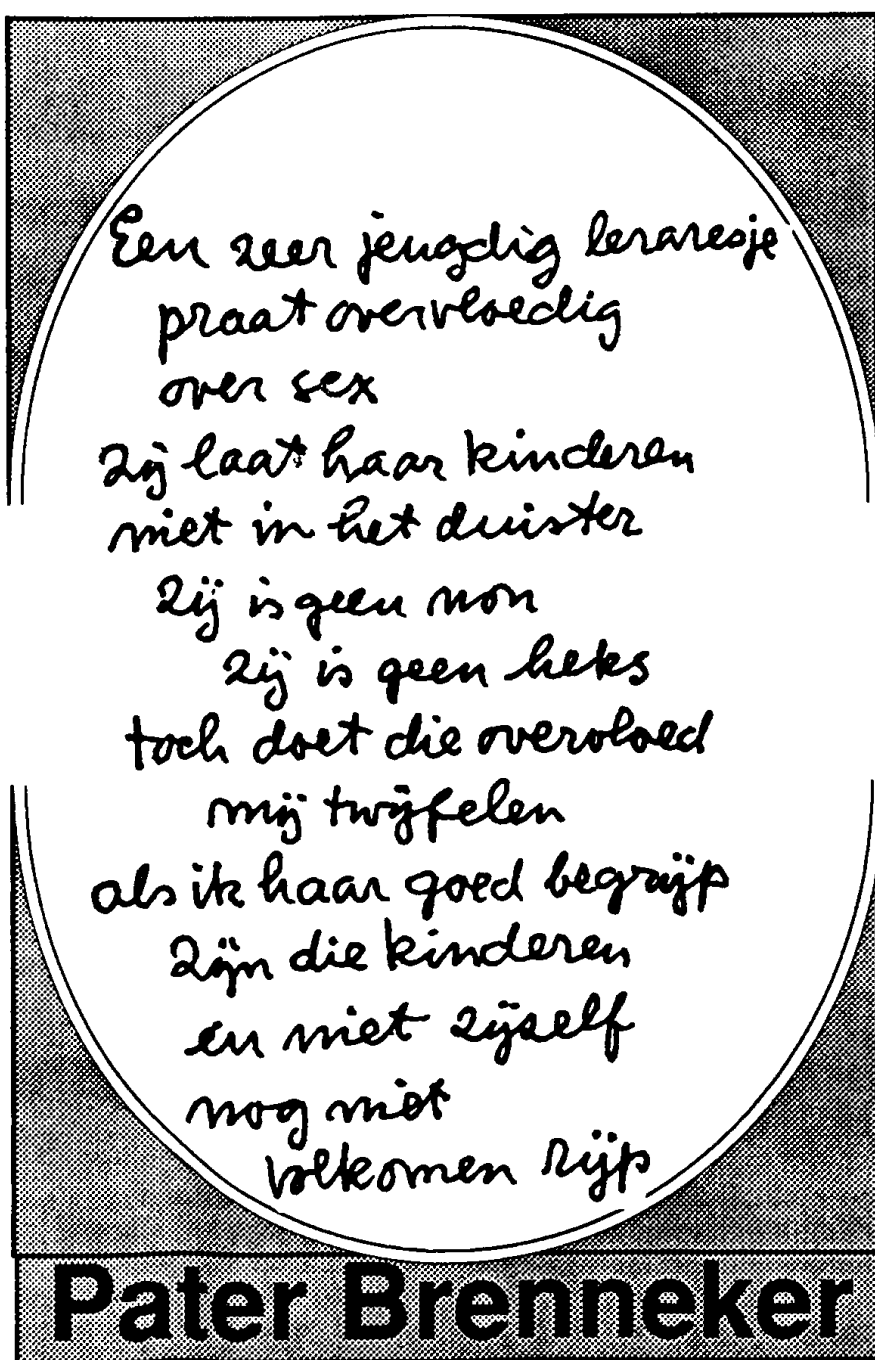 Een zeer jeugdig leraresje
praat overvloedig
over sex
zij laat haar kinderen
niet in het duister
zij is geen non
zij is geen heks
toch doet die overvloed
mij twijfelen
als ik haar goed begrijp
zijn die kinderen
en niet zijzelf
nog niet
volkomen rijp
Pater Brenneker